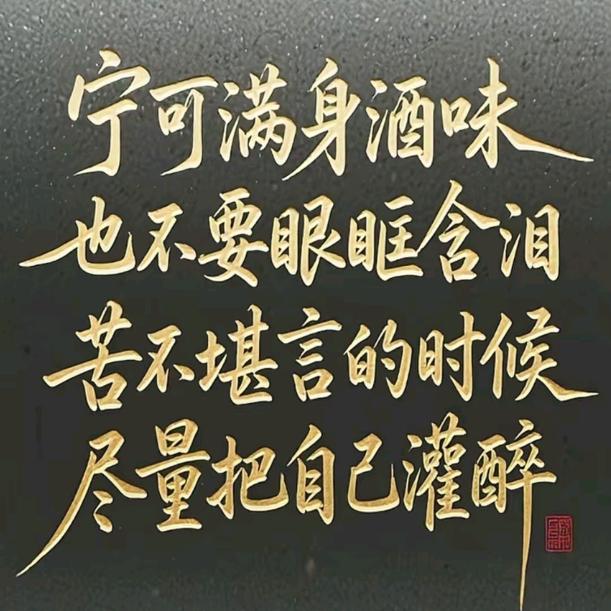 宁可满身酒味
也不要眼眶含泪
苦不堪言的时候
尽量把自己灌醉